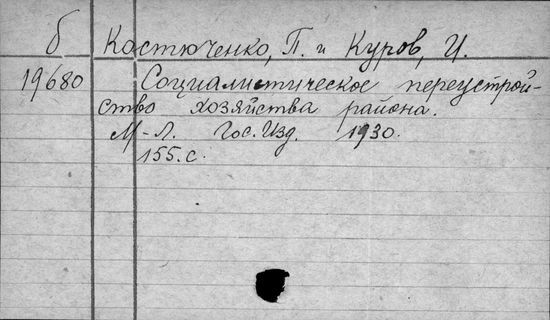 б Костюченко, П. и Куров, И.
19680 Социалистическое переустрой-
ство хозяйства района.
М-Л. Гос. Изд. 1930.
155.с.